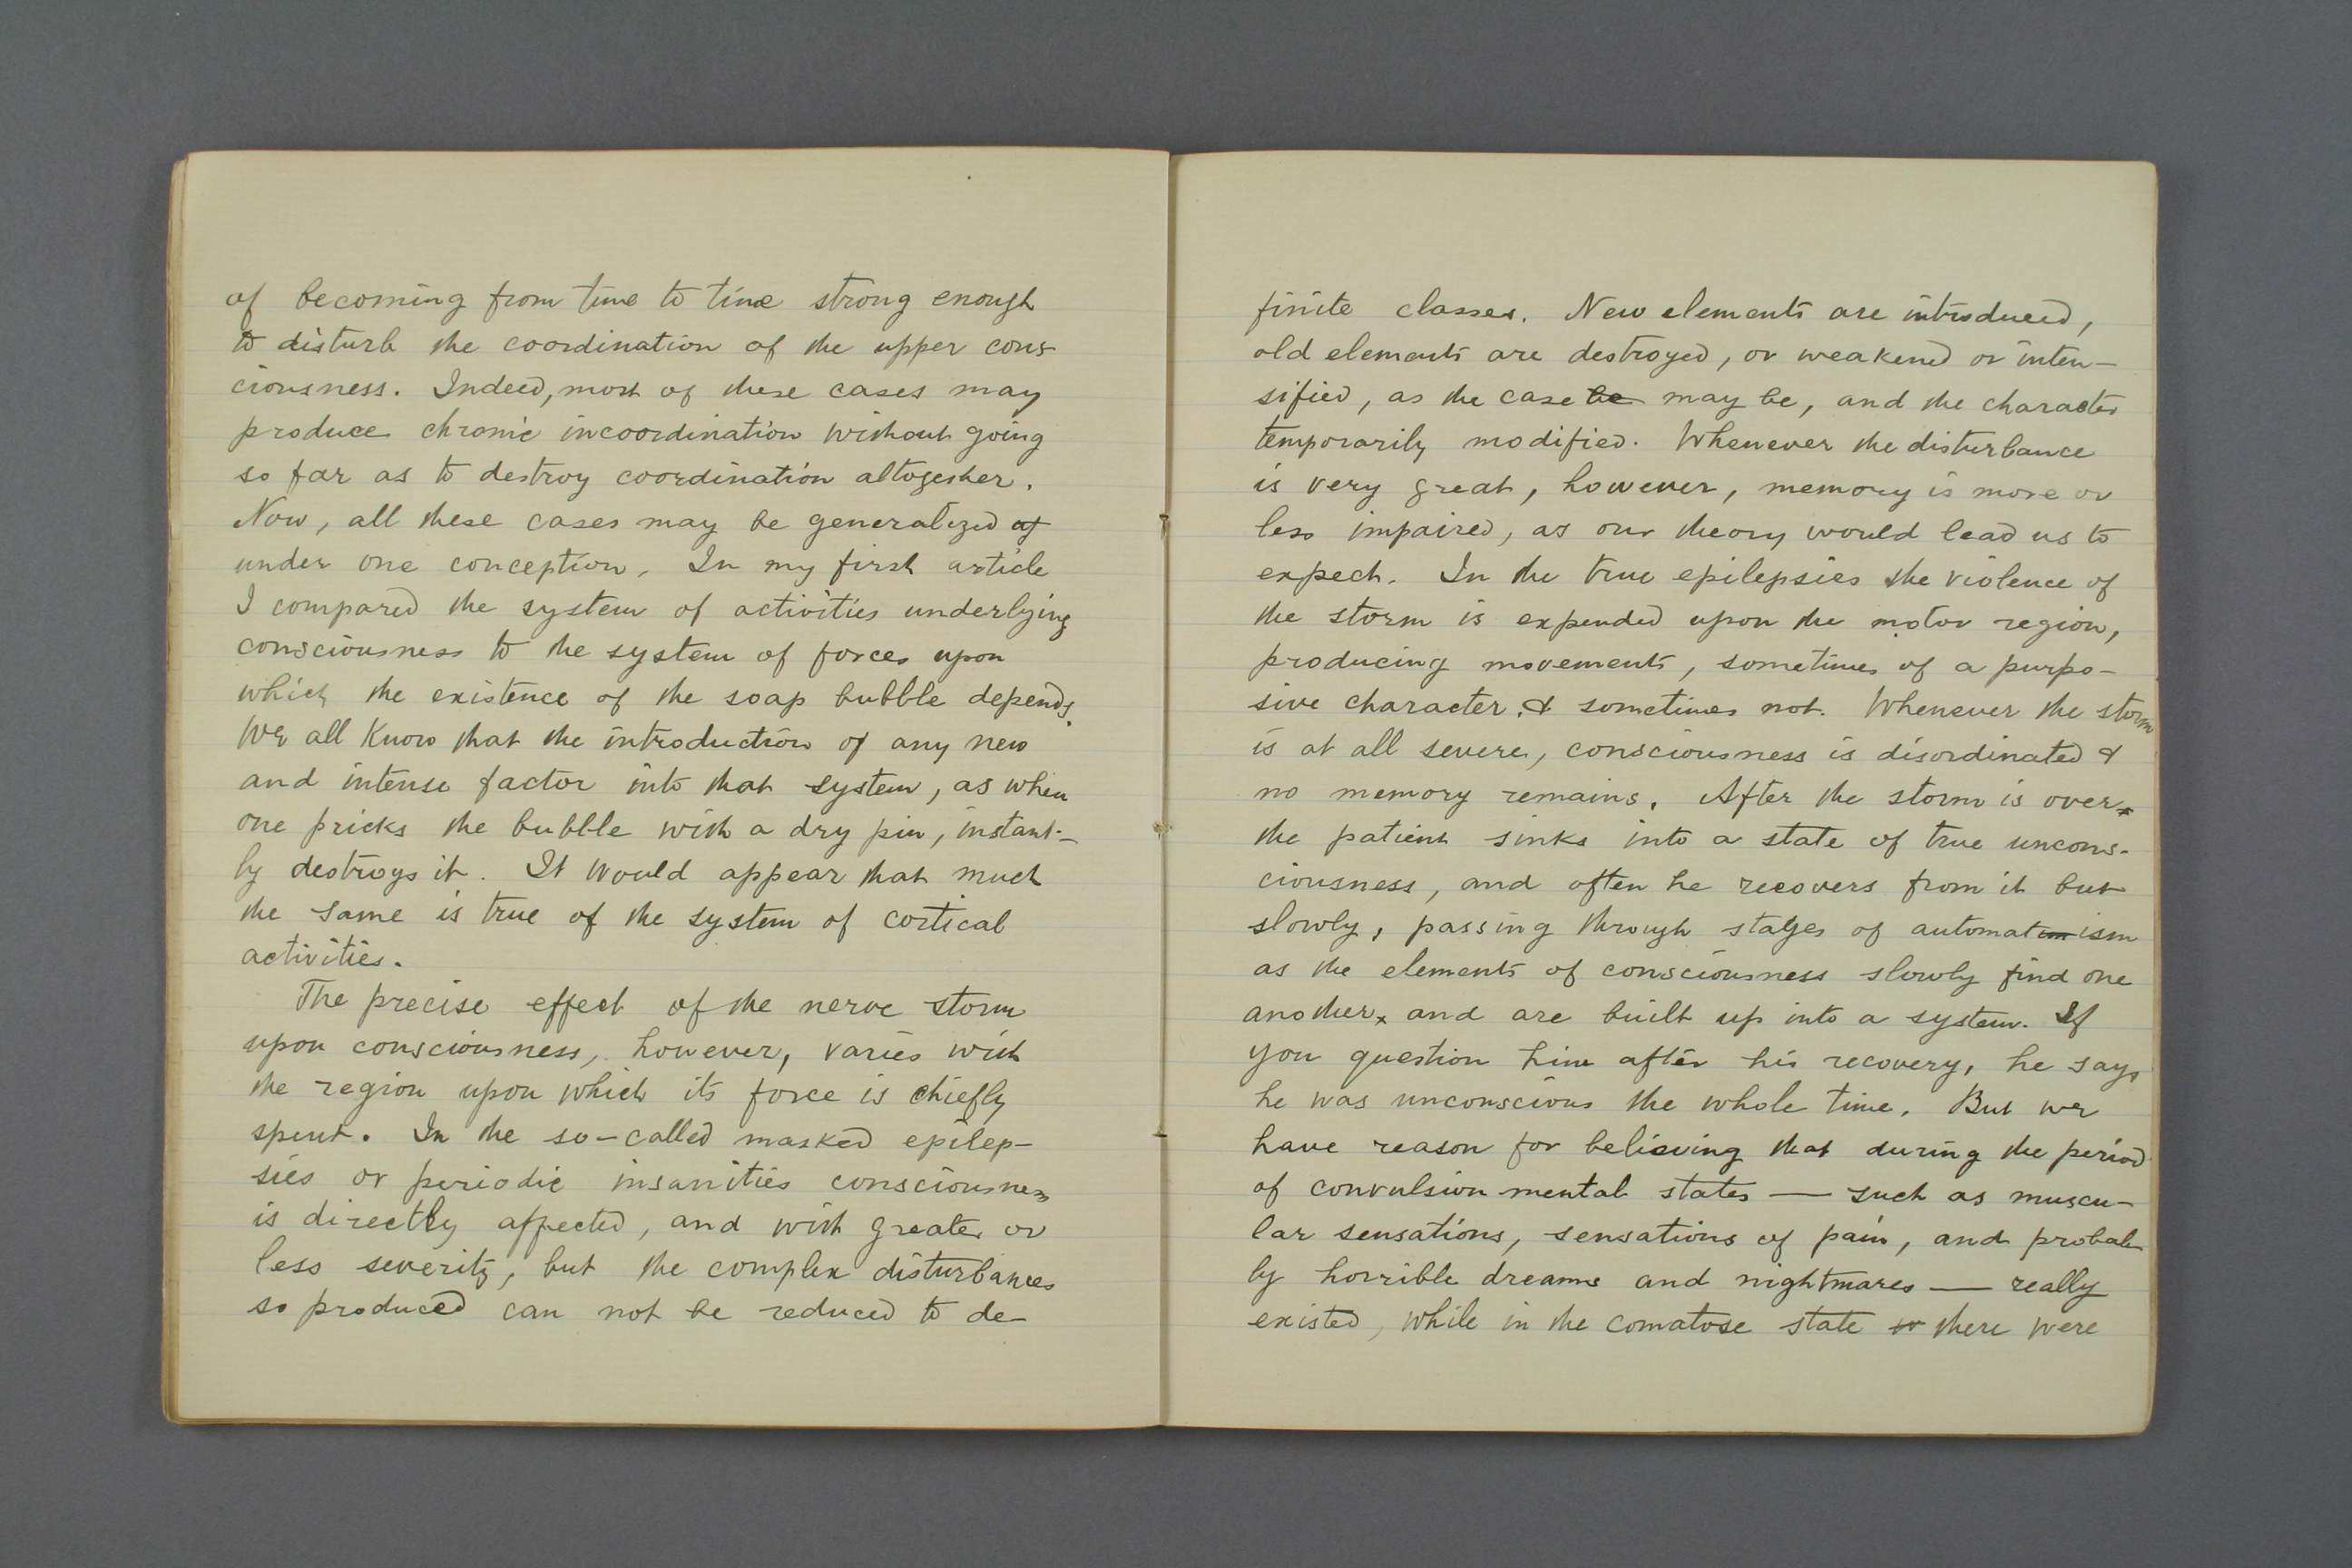 of becoming from time to time strong enough
to disturb the coordination of the upper cons-
ciousness. Indeed, most of these cases may
produce chronic incoordination without going
so far as to destroy coordination altogether.
Now, all these cases may be generalized of
under one conception. In my first article
I compared the system of activities underlying
consciousness to the system of forces upon
which the existence of the soap bubble depends.
We all know that the introduction of any new
and intense factor into that system, as when
one pricks the bubble with a dry pin, instant-
ly destroys it. It would appear that much
the same is true of the system of cortical
activities.
The precise effect of the nerve storm
upon consciousness, however, varies with
the region upon which its force is chiefly
spent. In the so-called masked epilep-
sies or periodic insanities consciousness
is directly affected, and with greater or
less severity, but the complex disturbances
so produced can not be reduced to de-
finite classes. New elements are introduced,
old elements are destroyed, or weakened or inten-
sified, as the case be may be, and the character
temporarily modified. Whenever the disturbance
is very great, however, memory is more or
less impaired, as our theory would lead us to
expect. In the true epilepsies the violence of
the storm is expended upon the motor region,
producing movements, sometimes of a purpo-
sive character, & sometimes not. Whenever the storm
is at all severe, consciousness is disordinated &
no memory remains. After the storm is over
the patient sinks into a state of true uncons-
ciousness, and often he recovers from it but
slowly, passing through stages of automatism
as the elements of consciousness slowly find one
another and are built up into a system. If
you question him after his recovery, he says
he was unconscious the whole time. But we
have reason for believing that during the period
of convulsion mental states — such as muscu-
lar sensations, sensations of pain, and probab-
ly horrible dreams and nightmares — really
existed, while in the comatose state there were